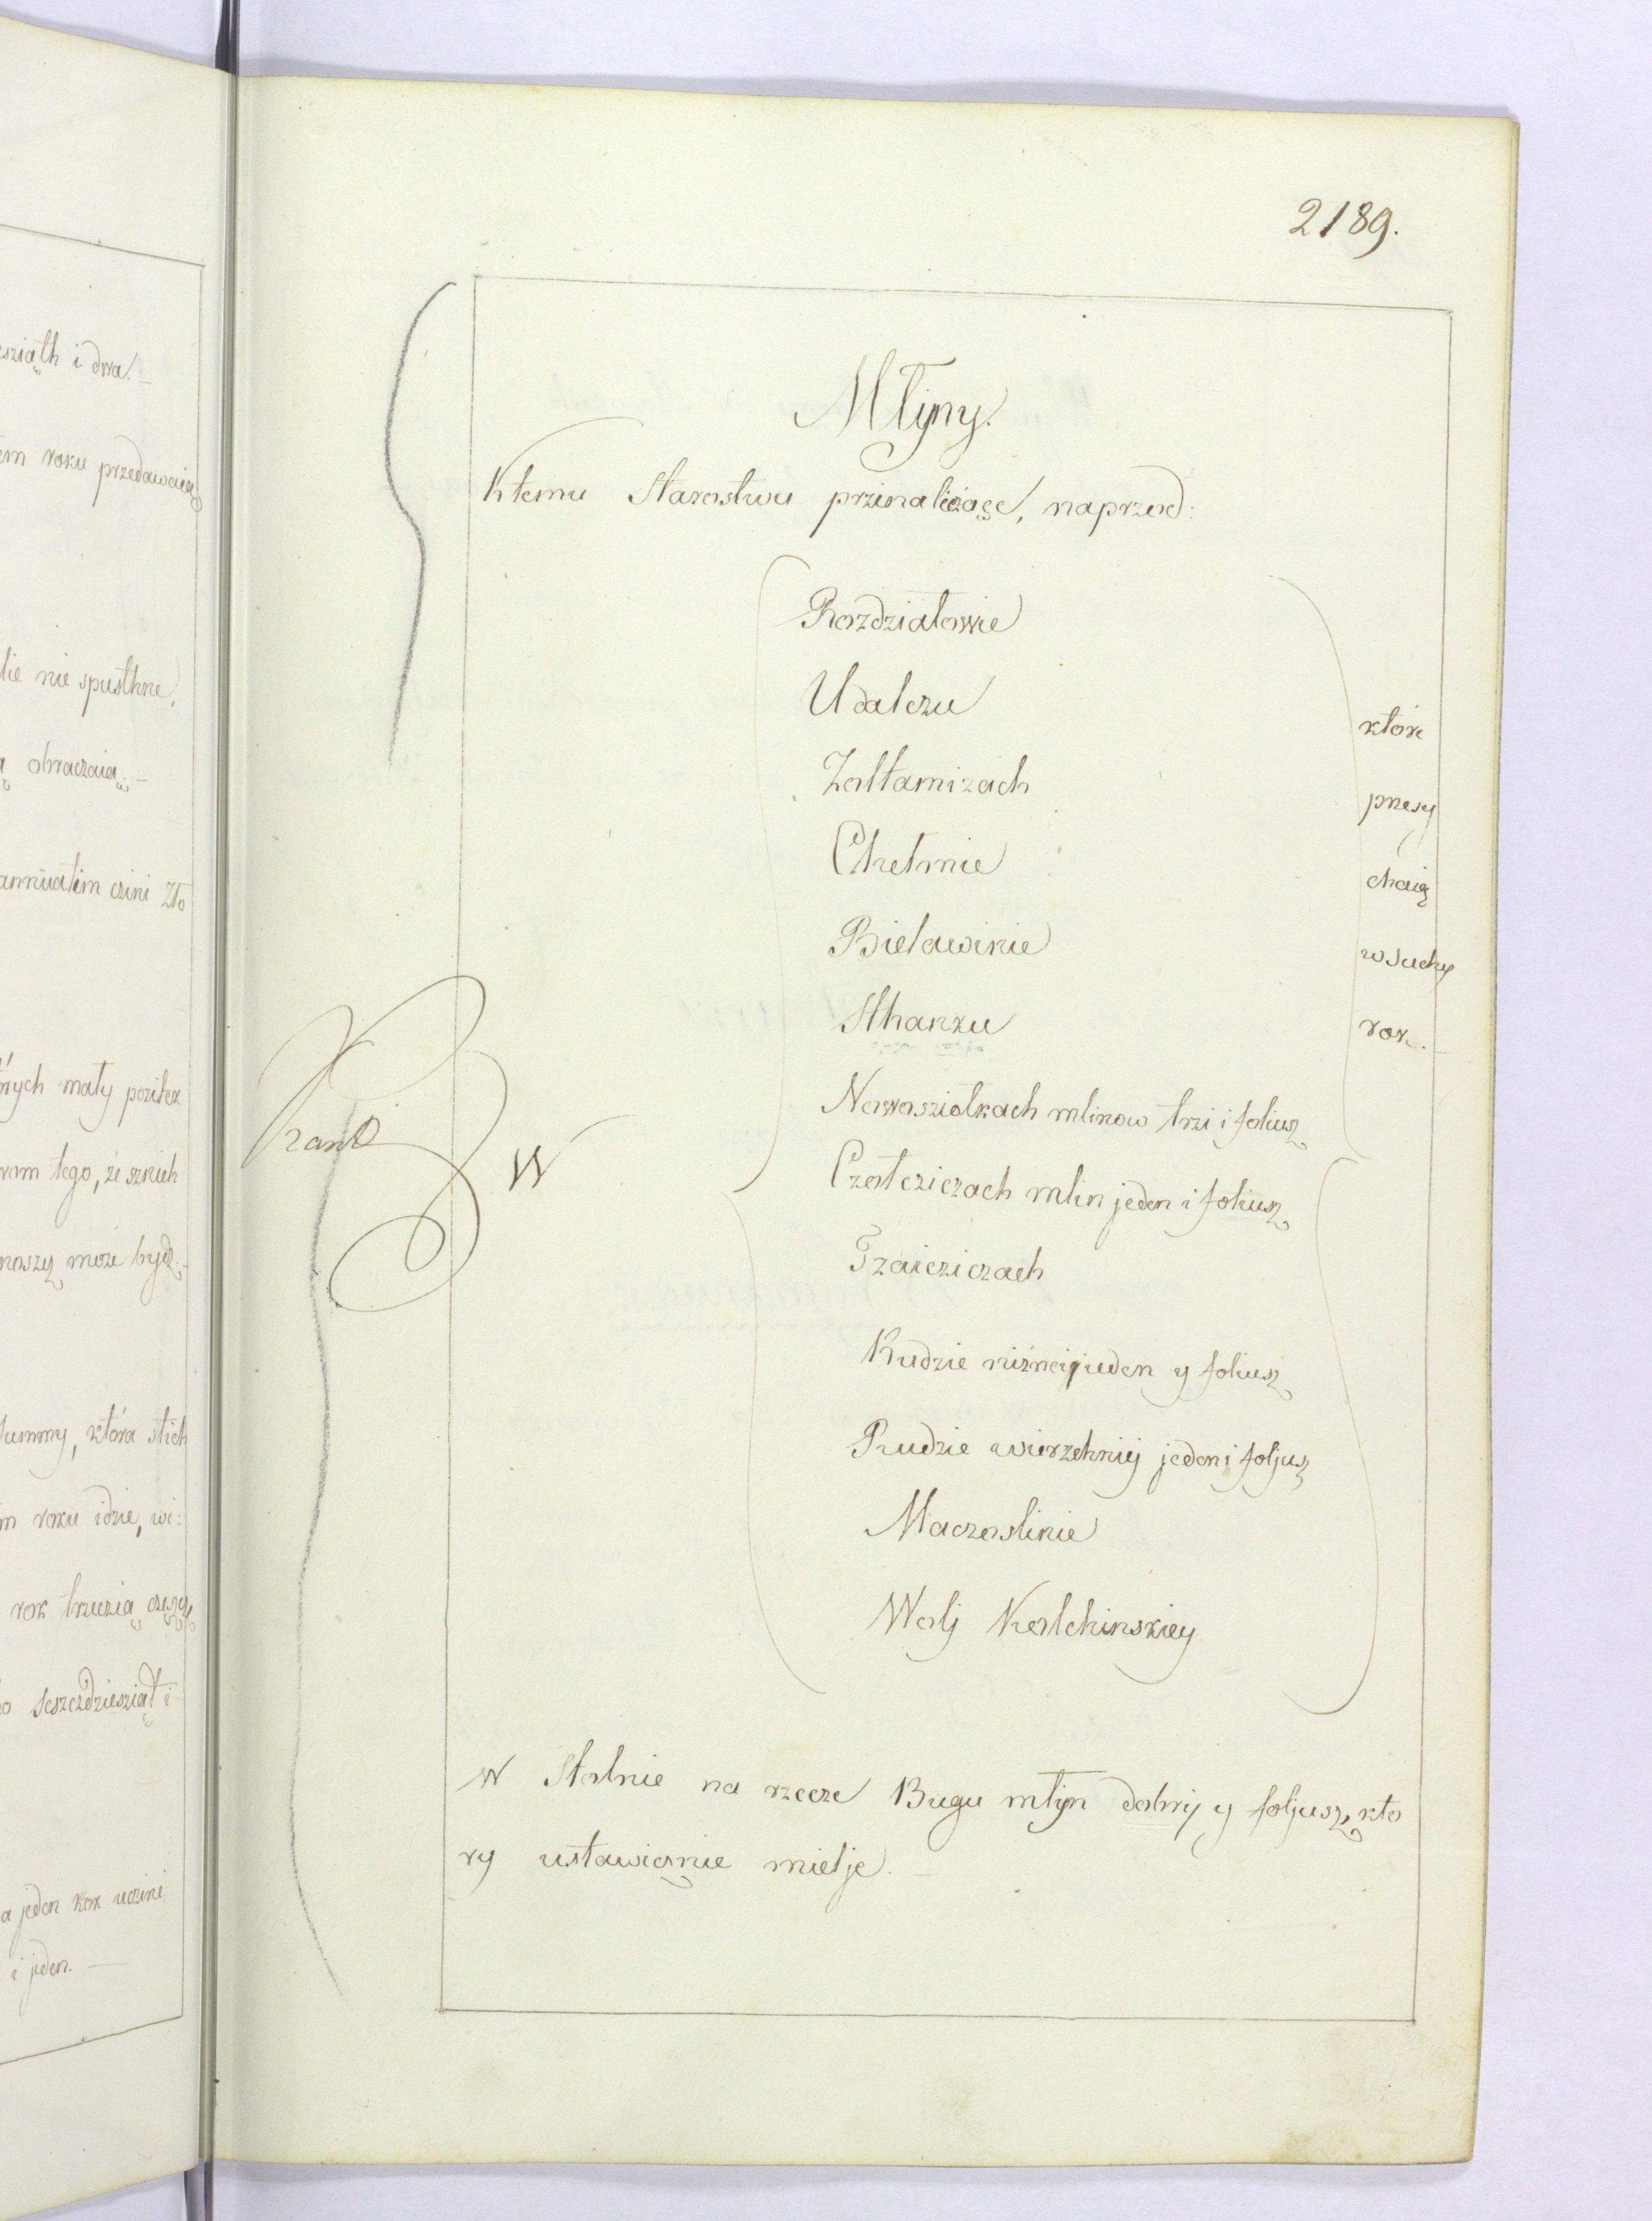 esziąth i dwa. –
em roku przedawaią
lie nie spusthne,
ą obraczaią. –
annuatim czini Zło
órych mały pozitek
ram tego, że sznich
noszy może bydz. –
summy, która stich
m roku idzie, wi:
rok trzecią częscz
o szeszczdziesziąt i
a jeden Rok uczini
i jeden. –
2189.
Młyny.
Ktemu Starostwu przinaliezące, naprzod:
Rozdziałowie
Udalczu
Zołtamizach
Chełmie
Bieławinie
Sthanzu
Nowosziolkach mlinow trzi i foliusz
Czołcziczach mlin jeden i foliusz
Tzaicziczach
Rudzie niżnei jeden y foliusz
Rudzie wierzchniij jeden i foljusz
Maczoslinie
Wolj Kolchinskiey
które
przesy
chaią
w suchy
rok. –
W
W Stolnie na rzecze Bugu młyn dobrij y foljusz, kto
ry ustawicznie mielje. –